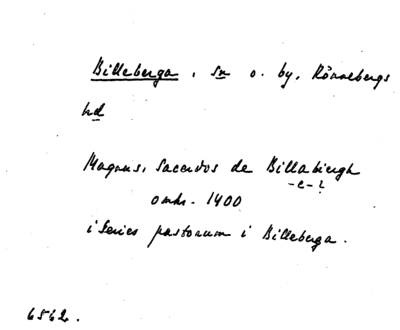 Billeberga, sn o. by, Rönnebergs
hd
Magnus, sacerdos de Billabiergh
-e-?
omkr. 1400
i Series pastorum i Billeberga.
6562.